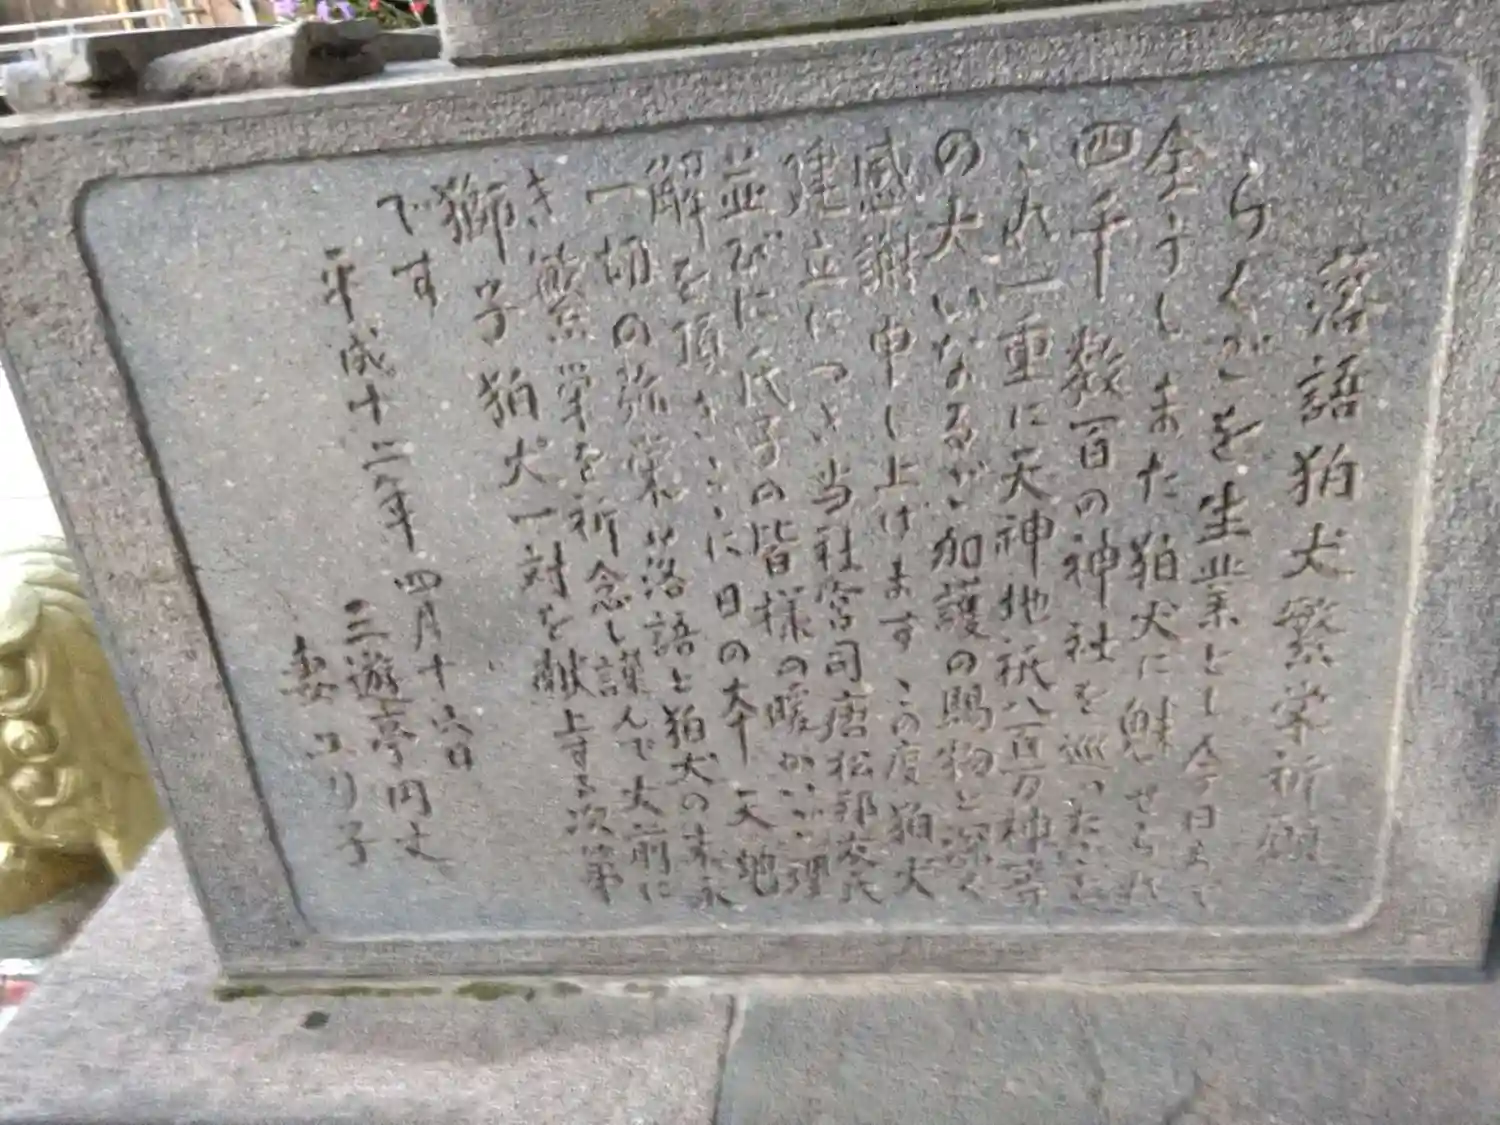 落語狛犬繁栄祈願
らくごを生業とし今日まで
全うしまた狛犬に魅せられ
四千数百の神社を巡ったこと
これ一重に天神地祇八百万神等
の大いなるご加護の賜物と深く
感謝申し上げますこの度狛犬
建立につき当社宮司唐松
並びに氏子の皆様の暖かいご理
解を頂きここに日の本天地
一切の弥栄落語と狛犬の末永
き繁栄を祈念し謹んで大前に
獅子狛犬一対を献上する次第
です
平成十二年四月十六日
三遊亭円丈